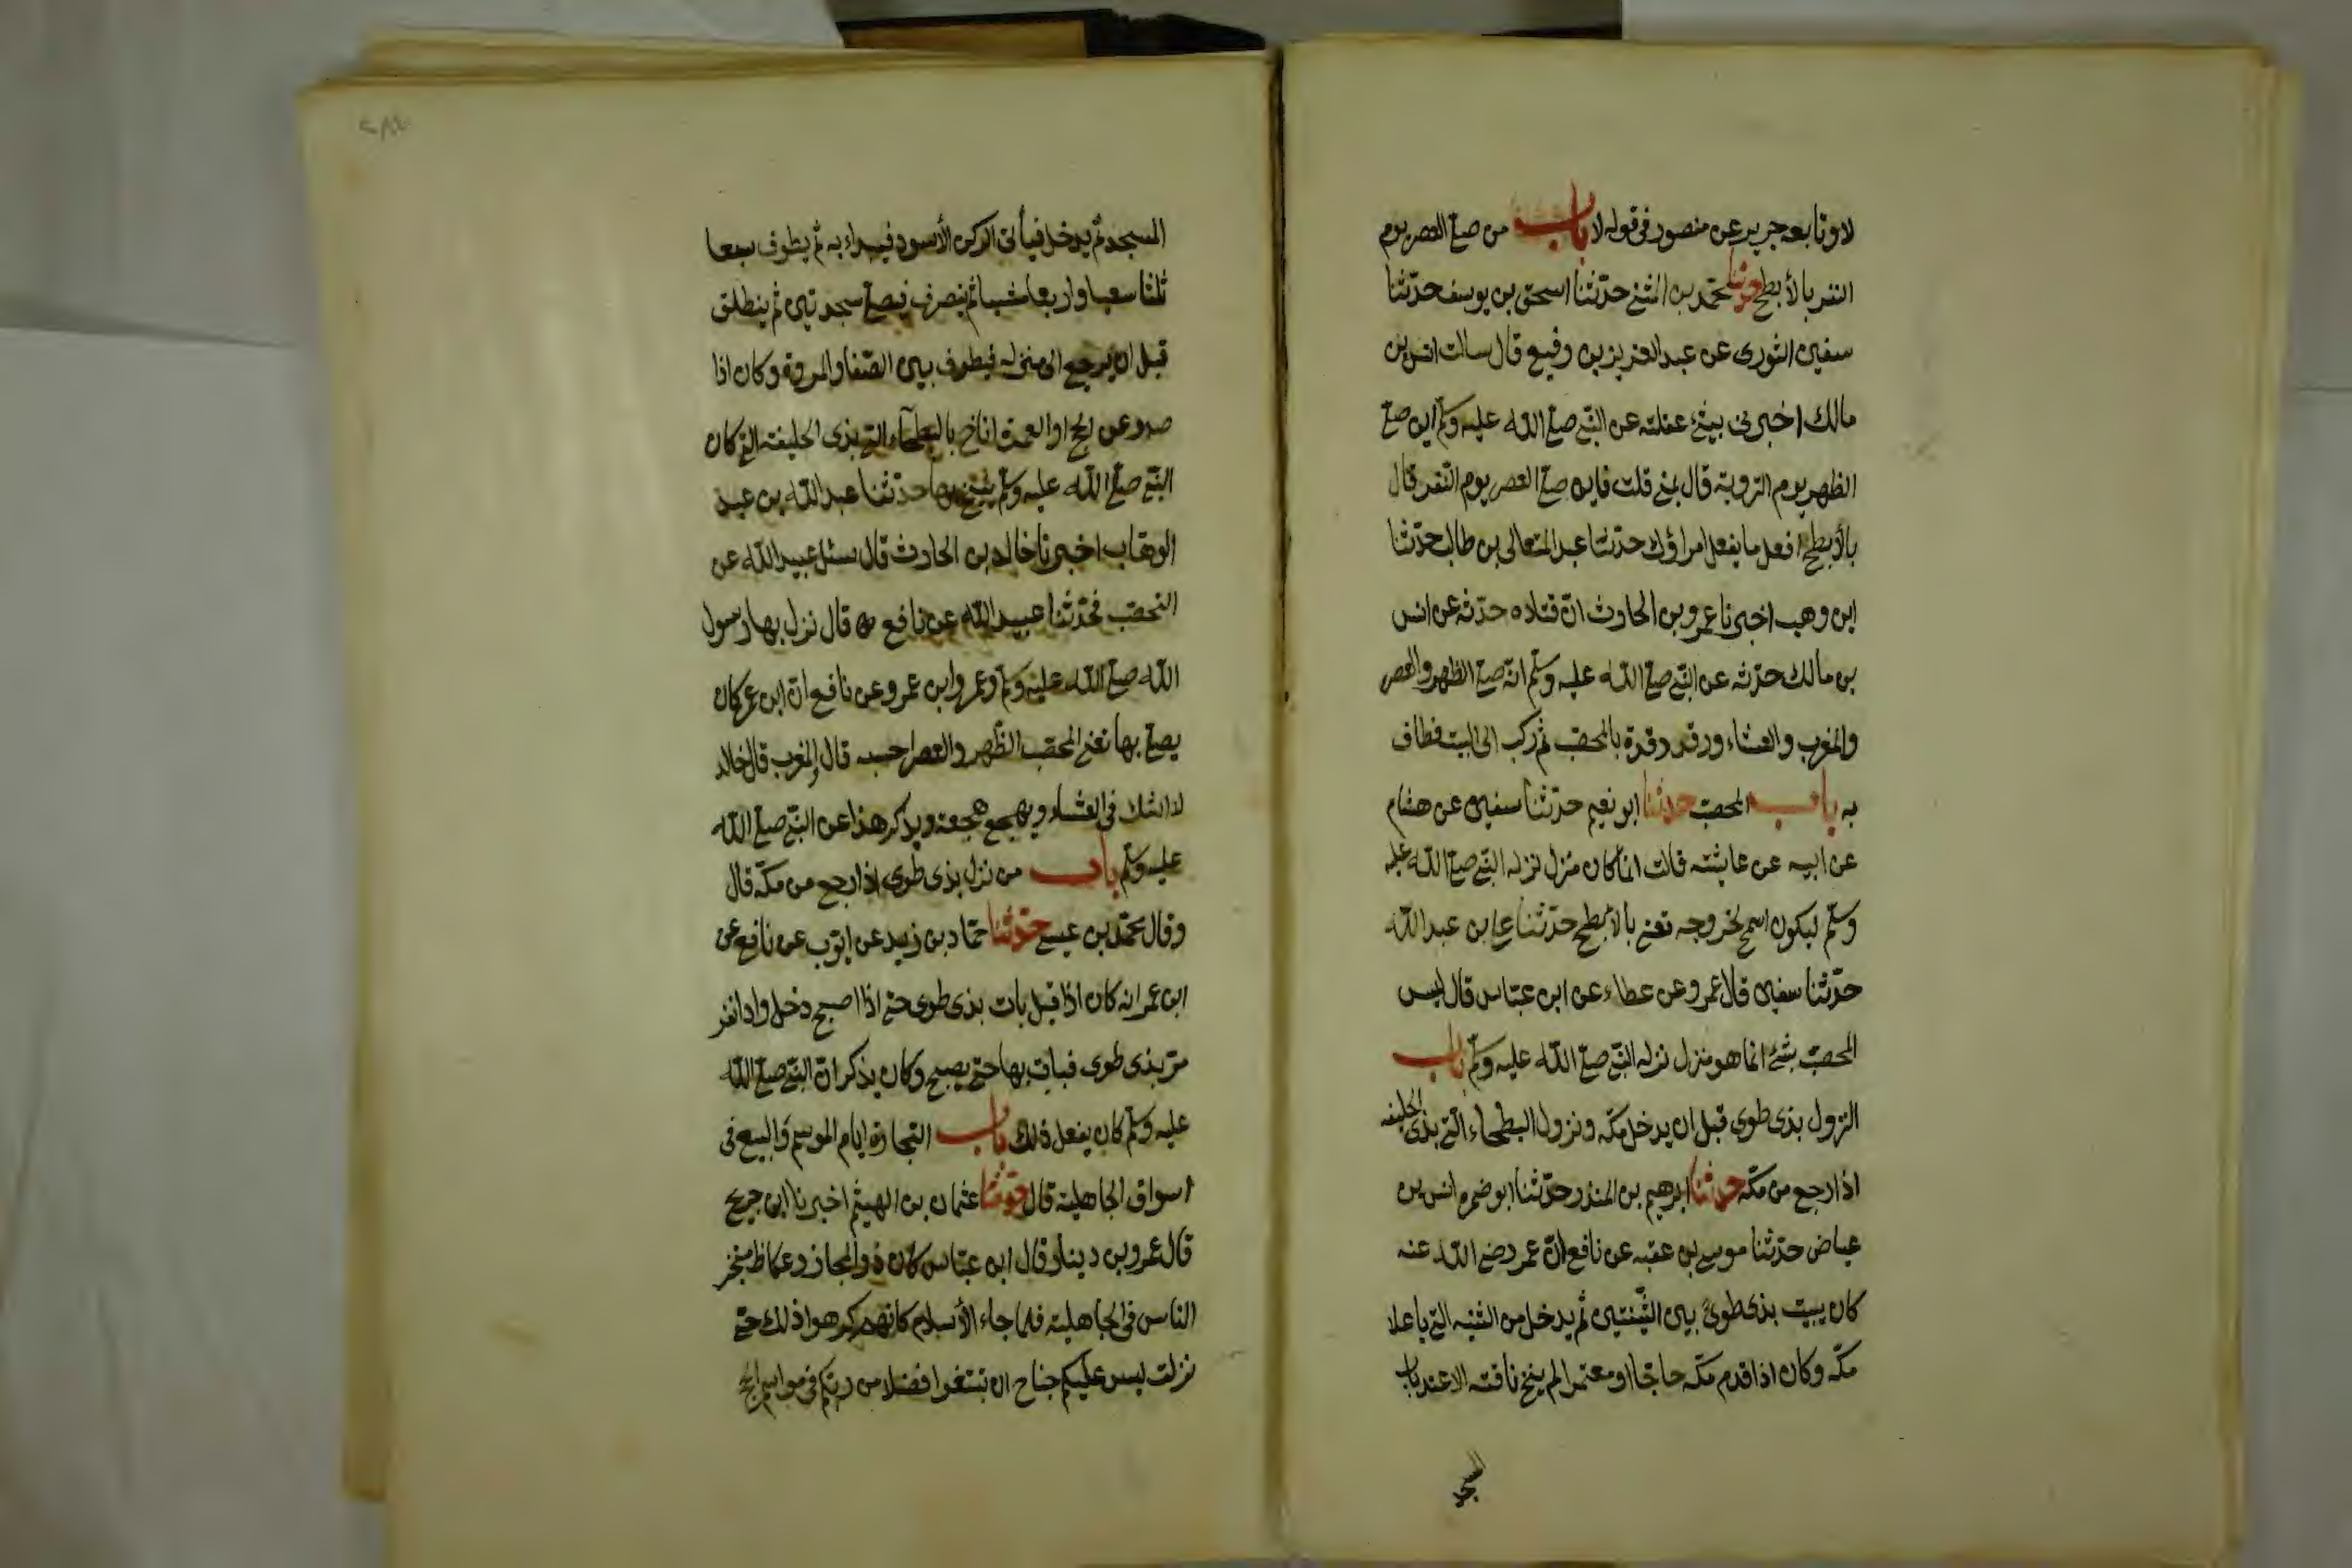 لا وتابعه جرير عن منصور فى قوله لا باب من صلى العصر يوم
النفر بالأبطح حدثنا محمد بن المثنى حدّثنا اسحق بن يوسف حدّثنا
سفين الثورى عن عبد العزيز بن رفيع قال سالت انس بن
مالك اخبرنى بشئ عقلته عن النبى صلى الله عليه وسلم اين صلى
الظهر يوم التروية قال بمنى قلت فاين صلى العصر يوم النفر قال
بالأبطح افعل ما يفعل امراؤك حدّثنا عبد المتعالى بن طالب حدّثنا
ابن وهب اخبرنا عمرو بن الحارث انّ قتاده حدّثه عن انس
بن مالك حدّثه عن النبى صلى الله عليه وسلم انّه صلى الظهر والعصر
والمغرب والعشاء ورقد رقدة بالمحصّب ثم ركب الى البيت فطاف
به باب المحصّب حدثنا ابو نعيم حدّثنا سفين عن هشام
عن ابيه عن عايشه قالت انما كان منزل نزله النبى صلى الله عليه
وسلم ليكون اسمح لخروجه تعنى بالابطح حدّثنا على بن عبد الله
حدّثنا سفين قال عمرو عن عطاء عن ابن عبّاس قال ليس
المحصّب بشئ انما هو منزل نزله النبى صلى الله عليه وسلم باب
النزول بذى طوى قبل ان يدخل مكّه ونزول البطحاء الّتى بذى الحليفه
اذا رجع من مكّه حدثنا ابرهيم بن المنذر حدّثنا ابو ضمره انس بن
عياض حدّثنا موسى بن عقبه عن نافع انّ عمر رضى الله عنه
كان يبيت بذى طوى بين الثّنيتين ثم يدخل من الثنيه التى باعلا
مكّه وكان اذا قدم مكّه حاجّا او معتمرا لم ينخ ناقته الا عند باب
المسجد
المسجد ثم يدخل فيأتى الركن الأسود فيبداء به ثم يطوف سبعا
ثلثا سعيا واربعا مشيا ثم ينصرف فيصلى سجدتين ثم ينطلق
قبل ان يرجع الى منزله فيطوف بين الصّفا والمروة وكان اذا
صدر عن الحج او العمرة اناخ بالبطحآء التى بذى الحليفه التى كان
النبى صلى الله عليه وسلم ينيخ بها حدّثنا عبد الله بن عبد
الوهّاب اخبرنا خالد بن الحارث قال سئل عبيد الله عن
المحصّب فحدّثنا عبيد الله عن نافع قال نزل بها رسول
الله صلى الله عليه وسلم وعمر وابن عمر وعن نافع انّ ابن عمر كان
يصلى بها تعنى المحصّب الظّهر والعصر احسبه قال والمغرب قال خالد
لا اشك فى العشاء ويهجع هجعه ويذكر هذا عن النبى صلى الله
عليه وسلم باب من نزل بذى طوى اذا رجع من مكّه قال
وقال محمّد بن عيسى حدّثنا حمّاد بن زيد عن ايّوب عن نافع عن
ابن عمر انه كان اذا قبل بات بذى طوى حتى اذا اصبح دخل واذا نفر
مرّ بذى طوى فبات بها حتى يصبح وكان يذكر انّ النبى صلى الله
عليه وسلم كان يفعل ذلك باب التجارة ايام الموسم والبيع فى
اسواق الجاهلية قال حدّثنا عثمان بن الهيثم اخبرنا ابن جريج
قال عمرو بن دينار قال ابن عبّاس كان ذو المجاز وعكاظ متجر
الناس فى الجاهلية فلما جاء الأسلام كانهم كرهوا ذلك حتى
نزلت ليس عليكم جناح ان تبتغوا فضلا من ربكم فى مواسم الحج